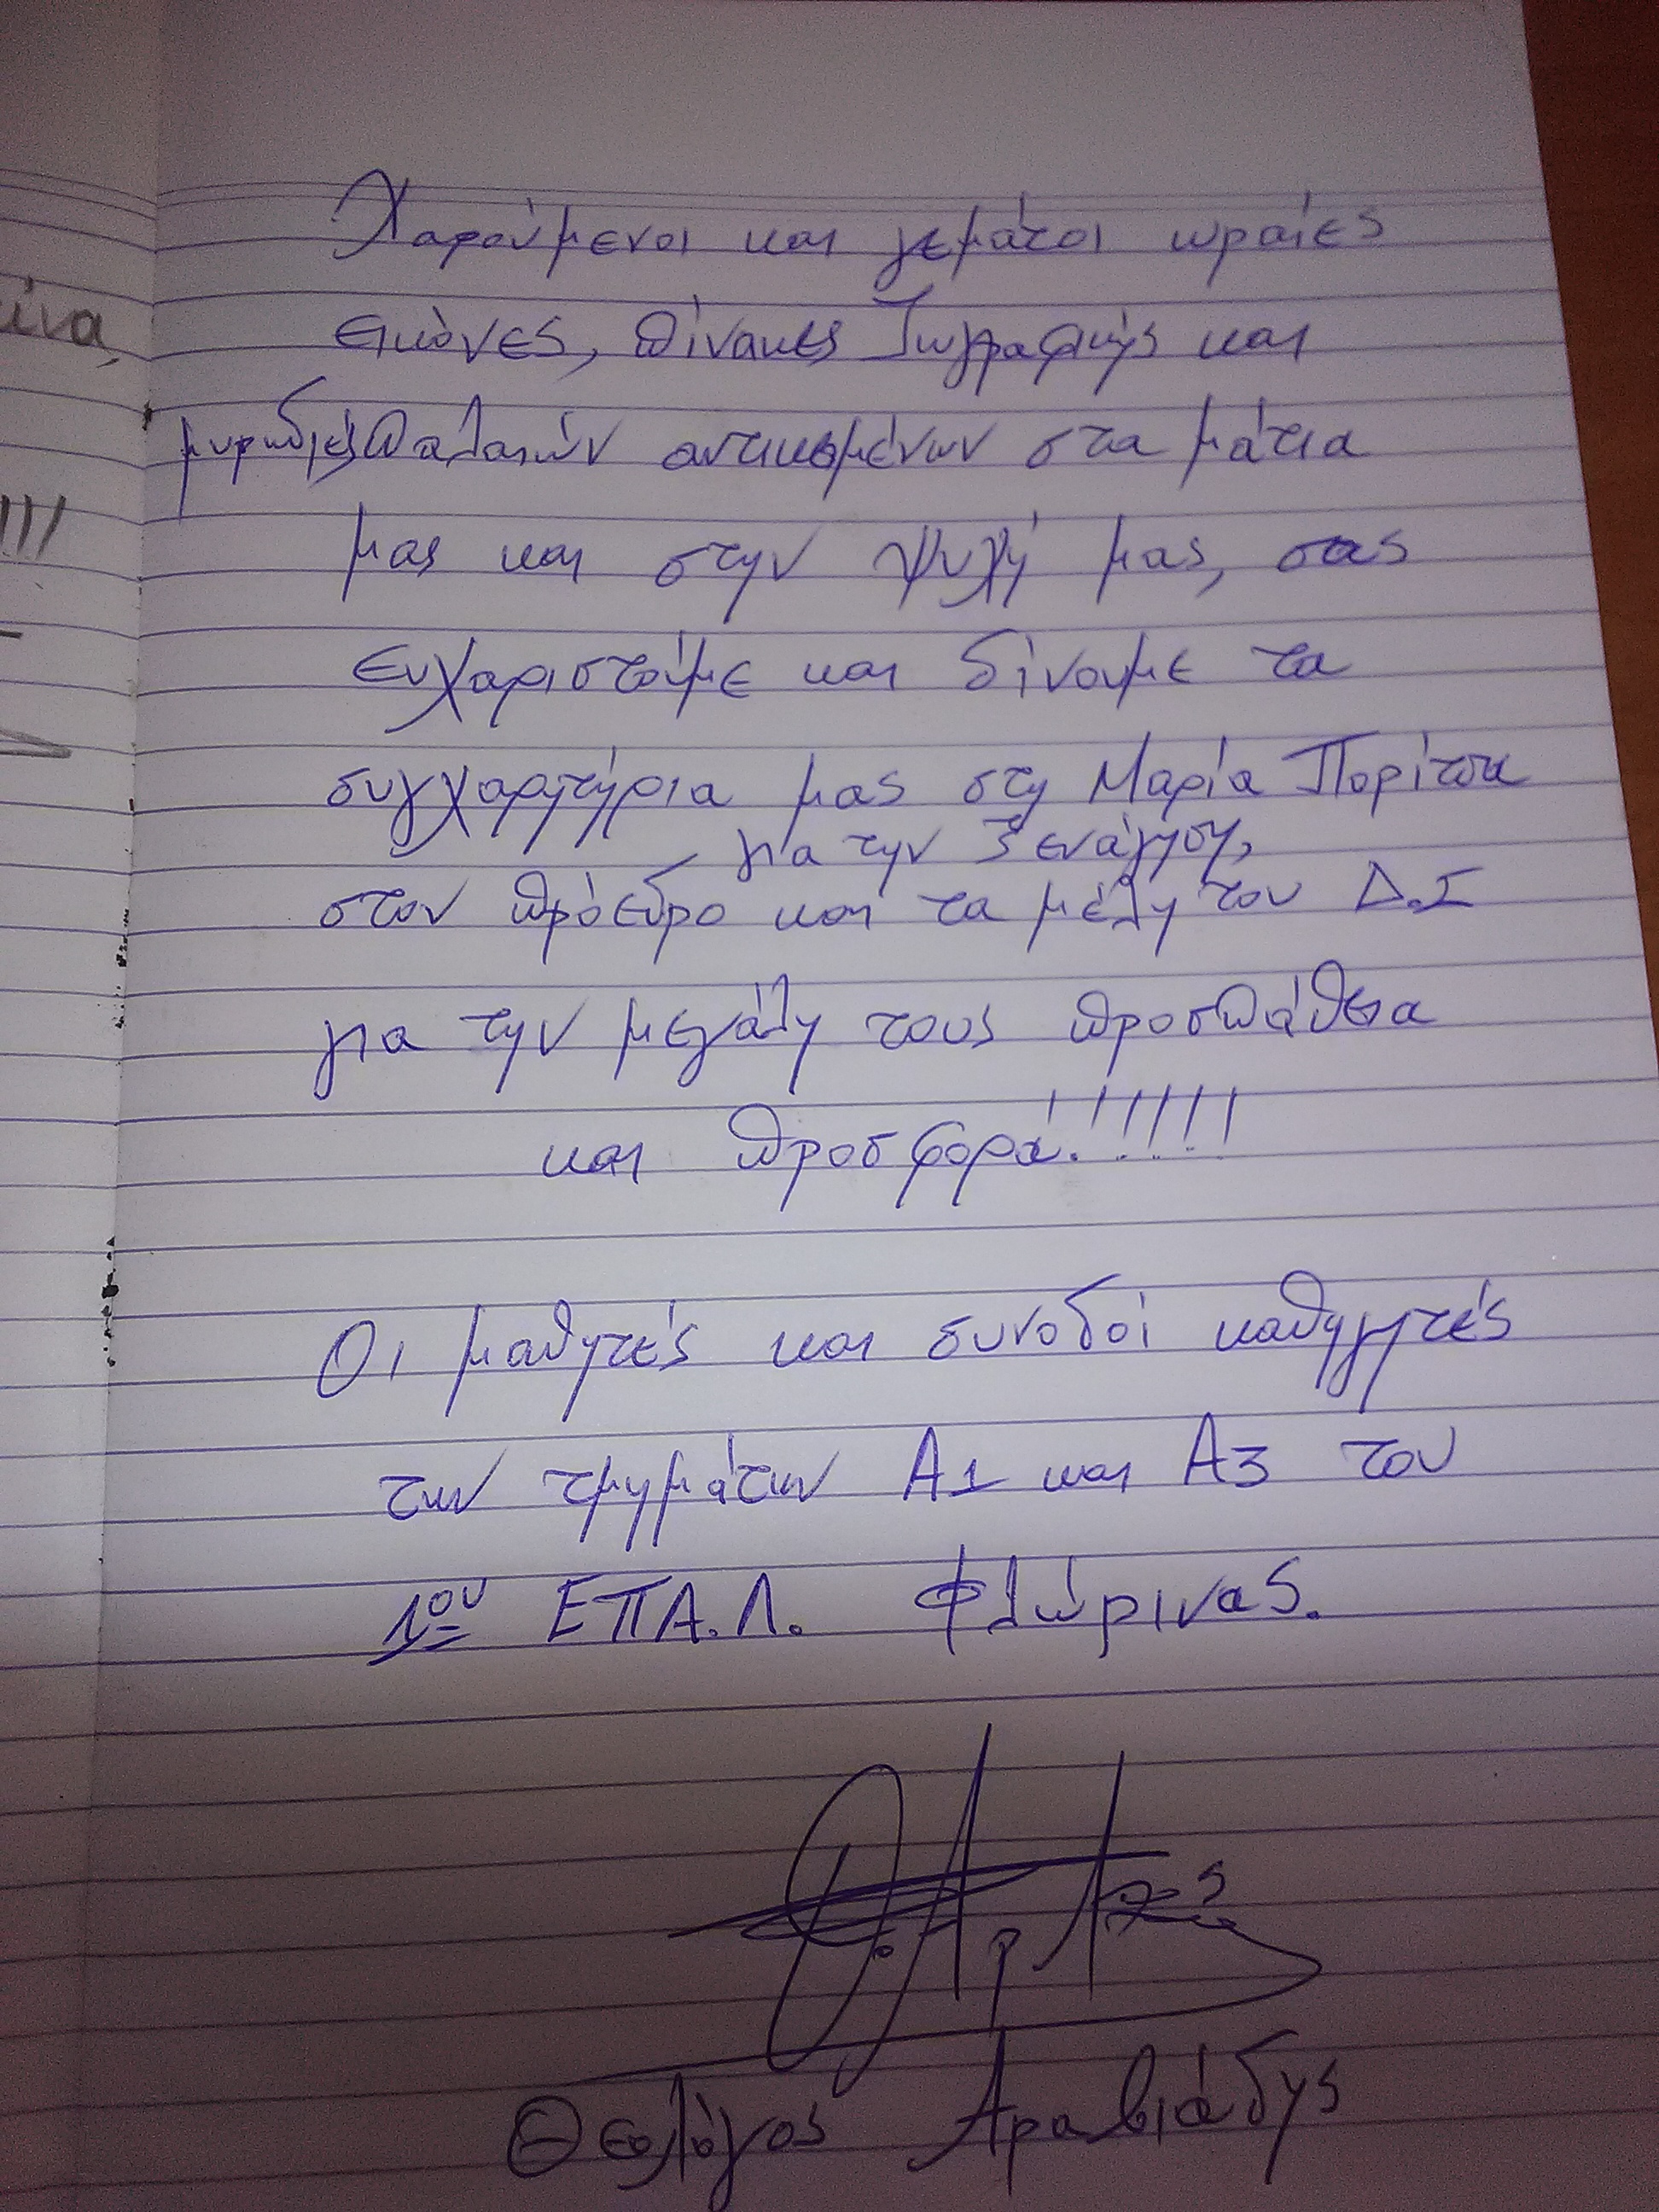 είνα,
!!!
Χαρούμενοι και γεμάτοι ωραίες
εικόνες, πίνακες ζωγραφικής και
μυρωδιές παλαιών αντικειμένων στα μάτια
μας και στην ψυχή μας, σας
ευχαριστούμε και δίνουμε τα
συγχαρητήρια μας στη Μαρία Πορίτσα
για την ξενάγηση,
στον πρόεδρο και τα μέλη του Δ.Σ
για την μεγάλη τους προσπάθεια
και προσφορά!!!!!!
Οι μαθητές και συνοδοί καθηγητές
των τμημάτων Α1 και Α3 του
1ου ΕΠΑ.Λ. Φλώρινας.
Θεολόγος Αραβιάδης